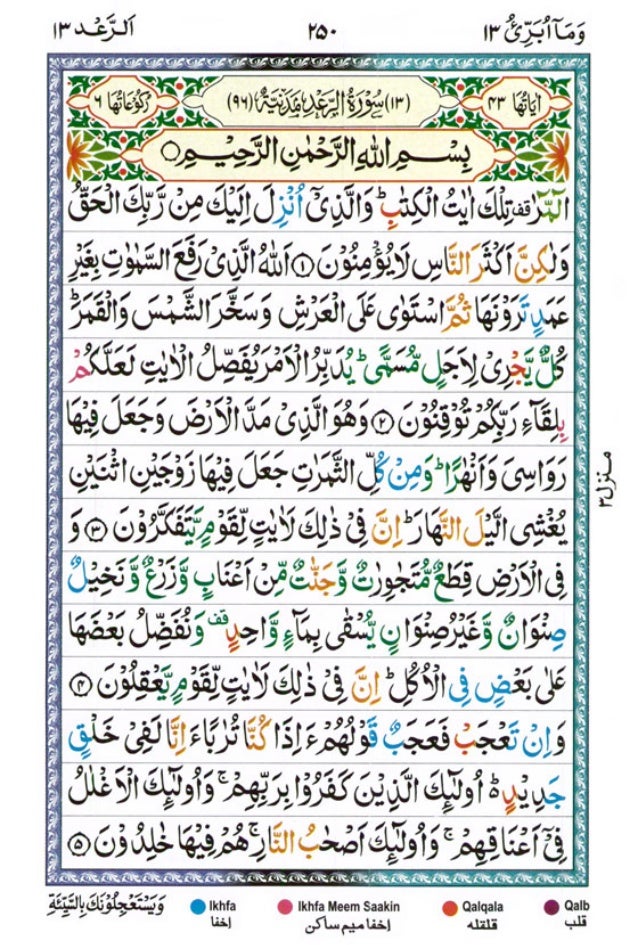 وَمَاۤ اُبَرِّئُ ۱۳
۲۵۰
اَلرَّعْد ۱۳
اٰيَاتُهَا ۴۳
(۱۳) سُوْرَةُ الرَّعْدِ مَدَنِيَّةٌ (۹۶)
رُكُوْعَاتُهَا ۶
بِسْمِ اللّٰهِ الرَّحْمٰنِ الرَّحِيْمِ ○
الٓمّٓرٰ ࣞ تِلْكَ اٰيٰتُ الْكِتٰبِ ؕ وَالَّذِىْۤ اُنْزِلَ اِلَيْكَ مِنْ رَّبِّكَ الْحَقُّ
وَلٰكِنَّ اَكْثَرَ النَّاسِ لَا يُؤْمِنُوْنَ ۱ اَللّٰهُ الَّذِىْ رَفَعَ السَّمٰوٰتِ بِغَيْرِ
عَمَدٍ تَرَوْنَهَا ثُمَّ اسْتَوٰى عَلَى الْعَرْشِ وَسَخَّرَ الشَّمْسَ وَالْقَمَرَ ؕ
كُلٌّ يَّجْرِىْ لِاَجَلٍ مُّسَمًّى ؕ يُدَبِّرُ الْاَمْرَ يُفَصِّلُ الْاٰيٰتِ لَعَلَّكُمْ
بِلِقَآءِ رَبِّكُمْ تُوْقِنُوْنَ ۲ وَهُوَ الَّذِىْ مَدَّ الْاَرْضَ وَجَعَلَ فِيْهَا
رَوَاسِىَ وَاَنْهٰرًا ؕ وَمِنْ كُلِّ الثَّمَرٰتِ جَعَلَ فِيْهَا زَوْجَيْنِ اثْنَيْنِ
يُغْشِى الَّيْلَ النَّهَارَ ؕ اِنَّ فِىْ ذٰلِكَ لَاٰيٰتٍ لِّقَوْمٍ يَّتَفَكَّرُوْنَ ۳ وَ
فِى الْاَرْضِ قِطَعٌ مُّتَجٰوِرٰتٌ وَّجَنّٰتٌ مِّنْ اَعْنَابٍ وَّزَرْعٌ وَّنَخِيْلٌ
صِنْوَانٌ وَّغَيْرُ صِنْوَانٍ يُّسْقٰى بِمَآءٍ وَّاحِدٍ قف وَنُفَضِّلُ بَعْضَهَا
عَلٰى بَعْضٍ فِى الْاُكُلِ ؕ اِنَّ فِىْ ذٰلِكَ لَاٰيٰتٍ لِّقَوْمٍ يَّعْقِلُوْنَ ۴
وَاِنْ تَعْجَبْ فَعَجَبٌ قَوْلُهُمْ ءَاِذَا كُنَّا تُرٰبًا ءَاِنَّا لَفِىْ خَلْقٍ
جَدِيْدٍ ؕ اُولٰٓئِكَ الَّذِيْنَ كَفَرُوْا بِرَبِّهِمْ ۚ وَاُولٰٓئِكَ الْاَغْلٰلُ
فِىْۤ اَعْنَاقِهِمْ ۚ وَاُولٰٓئِكَ اَصْحٰبُ النَّارِ ۚ هُمْ فِيْهَا خٰلِدُوْنَ ۵
منزل ۳
وَيَسْتَعْجِلُوْنَكَ بِالسَّيِّئَةِ
Ikhfa
اخفا
Ikhfa Meem Saakin
اخفا ميم ساكن
Qalqala
قلقله
Qalb
قلب